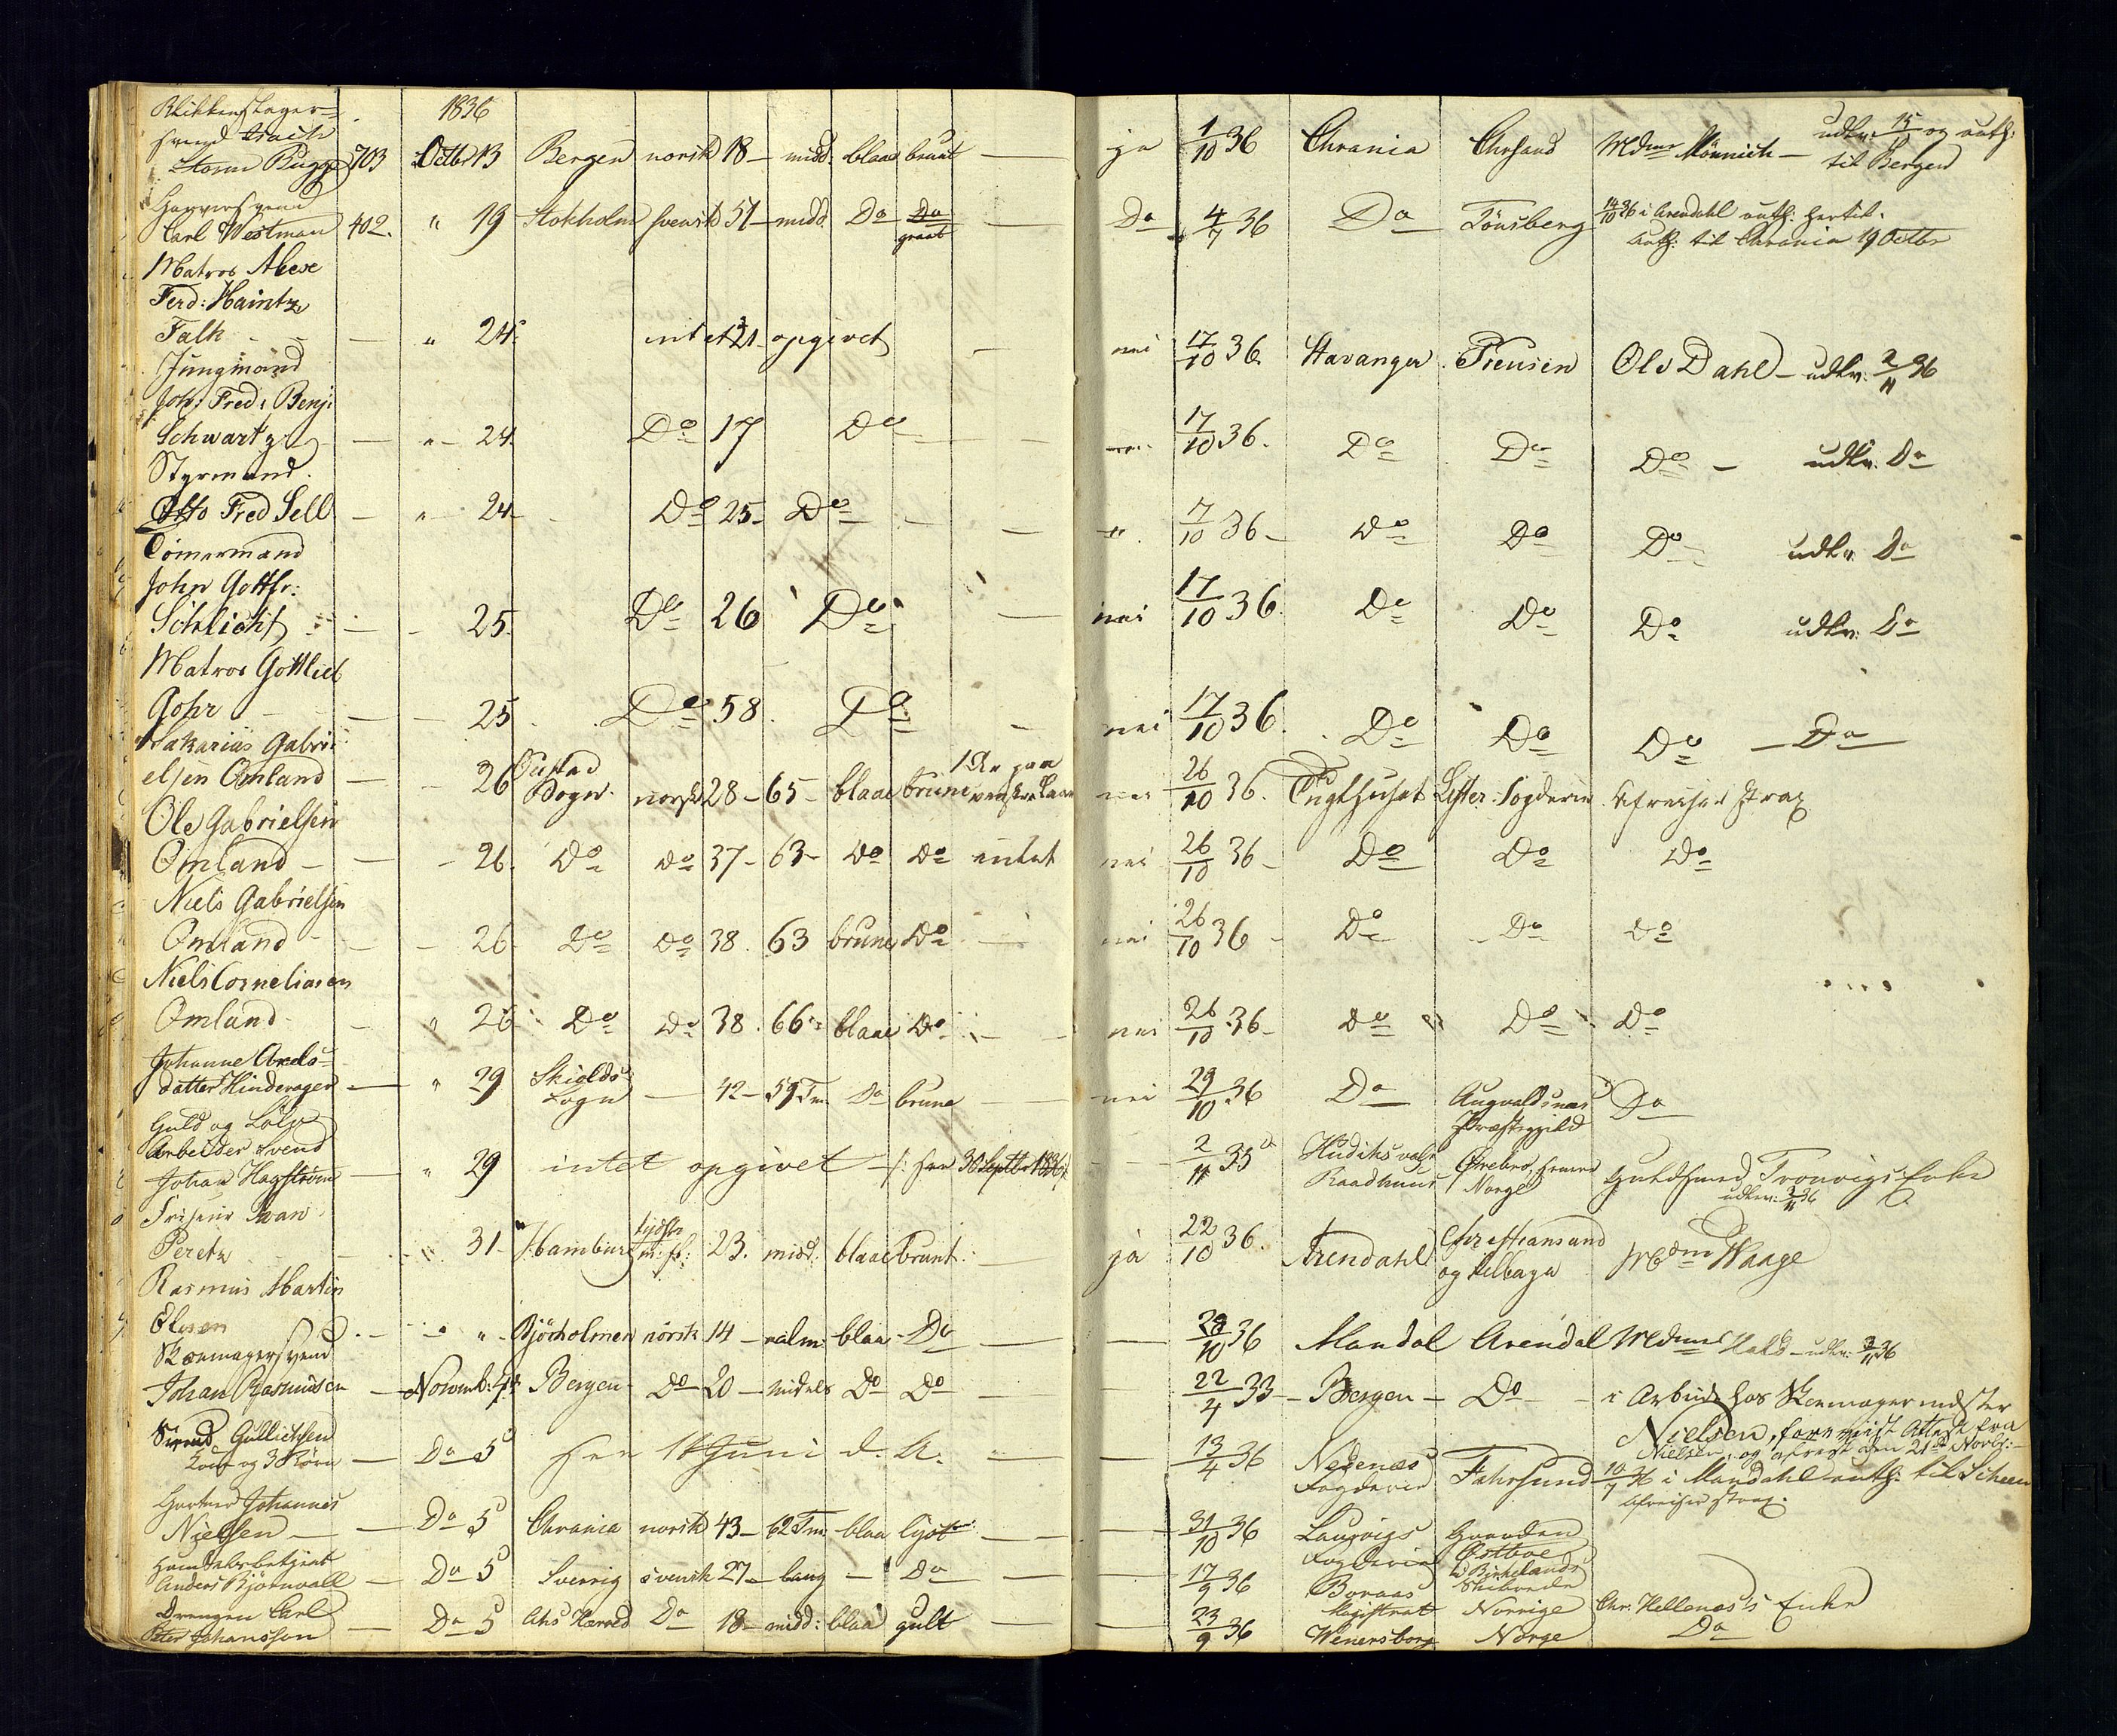 1836
Blikkenslager-
svend Isach
Storm Bügge 703 Octbr 13 Bergen norsk 18 — midd: blaae brunt — ja 1/10 36 Chrania Chrsand Mdme Mönnich — udlev: 15/ og auth:
til Bergen
Garversvend
Carl Westman 402. " 19 Stokholm svensk 51 — midd Do Do graat — Do 4/7 36 Do Tönsberg 14/10 36 i Arendahl auth: hertil.
auth: til Chrania 19 Octbr
Matros
Ferd: Haintz
Falk — " 24. intet 21 opgivet — nei 17/10 36. Stavanger Preusen Ole Dahl — udlev: 2/11 36
Jungmand
Joh: Fred: Benj:
Schwartz — " 24. Do 17 Do — 17/10 36. Do Do Do — udlev. Do
Styrmand.
Otto Fred Sell — " 24 — Do 25 — Do — 17/10 36 — Do Do Do — udlev. Do
Tömermand
John Gottfr:
Schlicht — 25. Do 26 Do — nei 17/10 36. Do Do Do udlev: Do
Matros Gottlieb
Gohr — 25 Do 58. Do — nei 17/10 36. Do Do Do — Do —
Sakarias Gabri-
elsen Omland — 26 Sogn. norsk 28 — 65 — blaae brune 1 Ar paa venstre Laar nei 26/10 36. Tugthuset Lister Fogderie afreiser strax
Ole Gabrielsen
Omland — 26. Do Do 37 — 63 — Do Do intet nei 26/10 36 — Do Do Do
Niels Gabrielsen
Omland — 26 Do Do 38. 63 brune Do — nei 26/10 36 — Do Do Do
Niels Corneliusen
Omland " 26 Do Do 38. 66 blaae Do — nei 26/10 36 — Do Do Do
Johanne Axels-
datter Hinderager — " 29 Skiolds Sogn — 42 — 59 Tm Do brune — nei 29/10 36 Do Augvaldsnæs Præstegjeld Do
Guld og Sölv
Arbeider Svend
Johan Hagström — " 29 intet opgivet — /: see 30 Septbr 1836 :/ 2/11 35 Hudiksvals Raadhuus Örebro, Norge Guldsmed Tronvigs Enke
udlev: 3/11 36
Friseur Iwan
Peretz — 31 — Hamburg tydsk 23. midd: blaae brunt. — ja 22/10 36. Arendahl Christiansand og tilbage Mdm Waage
Rasmus Martin
Olsen — " " — Björholmen norsk 14 — blaa — Do — 28/10 36 Mandal Arendal Mdme Hald — udlev: 3/11 36
Skoemagersvend
Johan Rasmusen — Novemb: 4 Bergen Do 20 — midels Do Do — 22/4 33 — Bergen — Do — i Arbeide hos Skoemagermester
Nielsen, foreviist Attest fra
Nielsen, og afreist den 21de Novbr: —
Svend Gullichsen
Kone og 3 Börn — Do 5 See 14 Juni d. A. — 13/4 36 Nedenæs Fogderie Fahrsund 10/7 36 i Mandahl auth: til Scheen
afreiser strax.
Gartner Johannes
Nielsen — Do 5 Chrania norsk 43 — 62 Tm: blaa lyst — 31/10 36 Laurvigs Fogderie
Anders Björnvall — Do 5 Sverrig svensk 27 — lang — Do — 17/9 36 Boraas Magistrat Norrige Chr. Hellenæs's Enke
Drengen Carl
Peter Johansson — Do 5 Ahs Hærred Do 18 — midd: blaa gult — 23/9 36 Wenersborg Norge Do